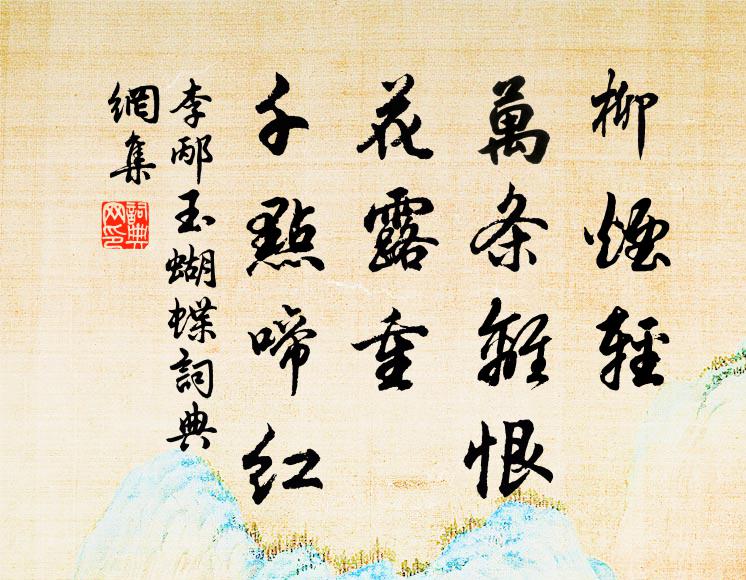 柳煙輕
萬条離恨
花露重
千點啼红
李邴玉蝴蝶詞典
網集
詞典
网印